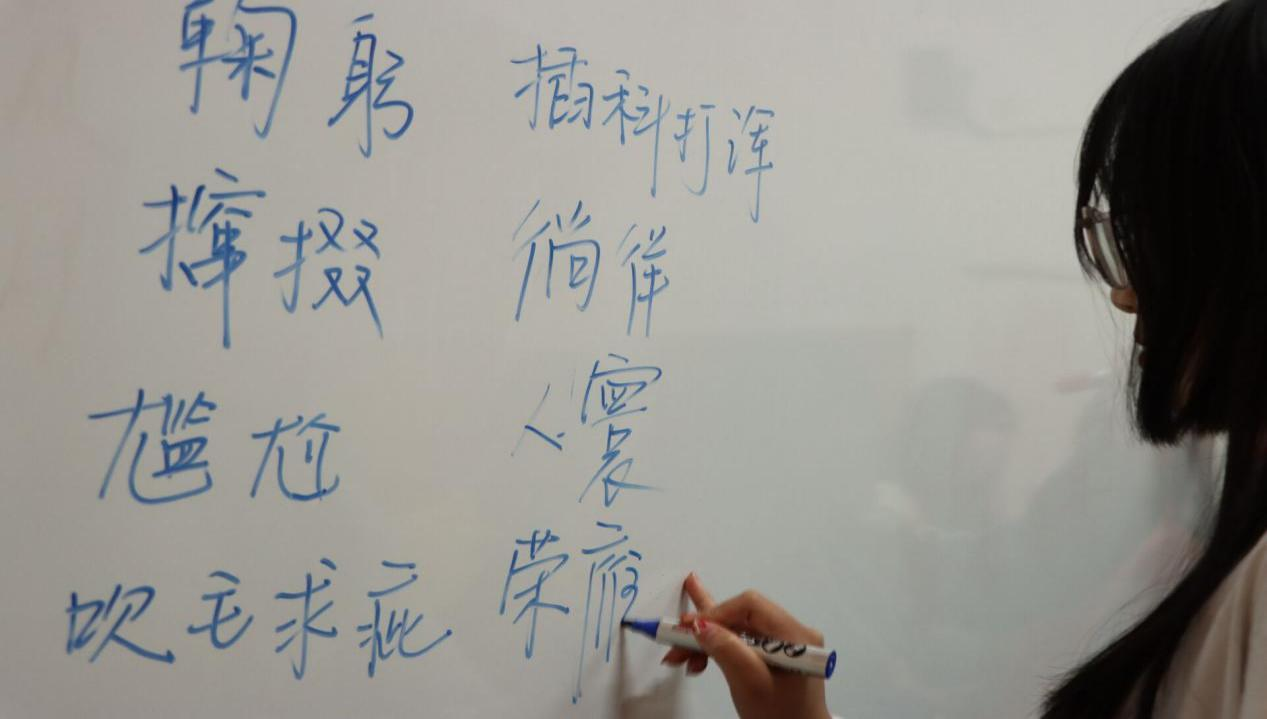 鞠躬
撺掇
尴尬
吹毛求疵
插科打浑
徜徉
人寰
荣